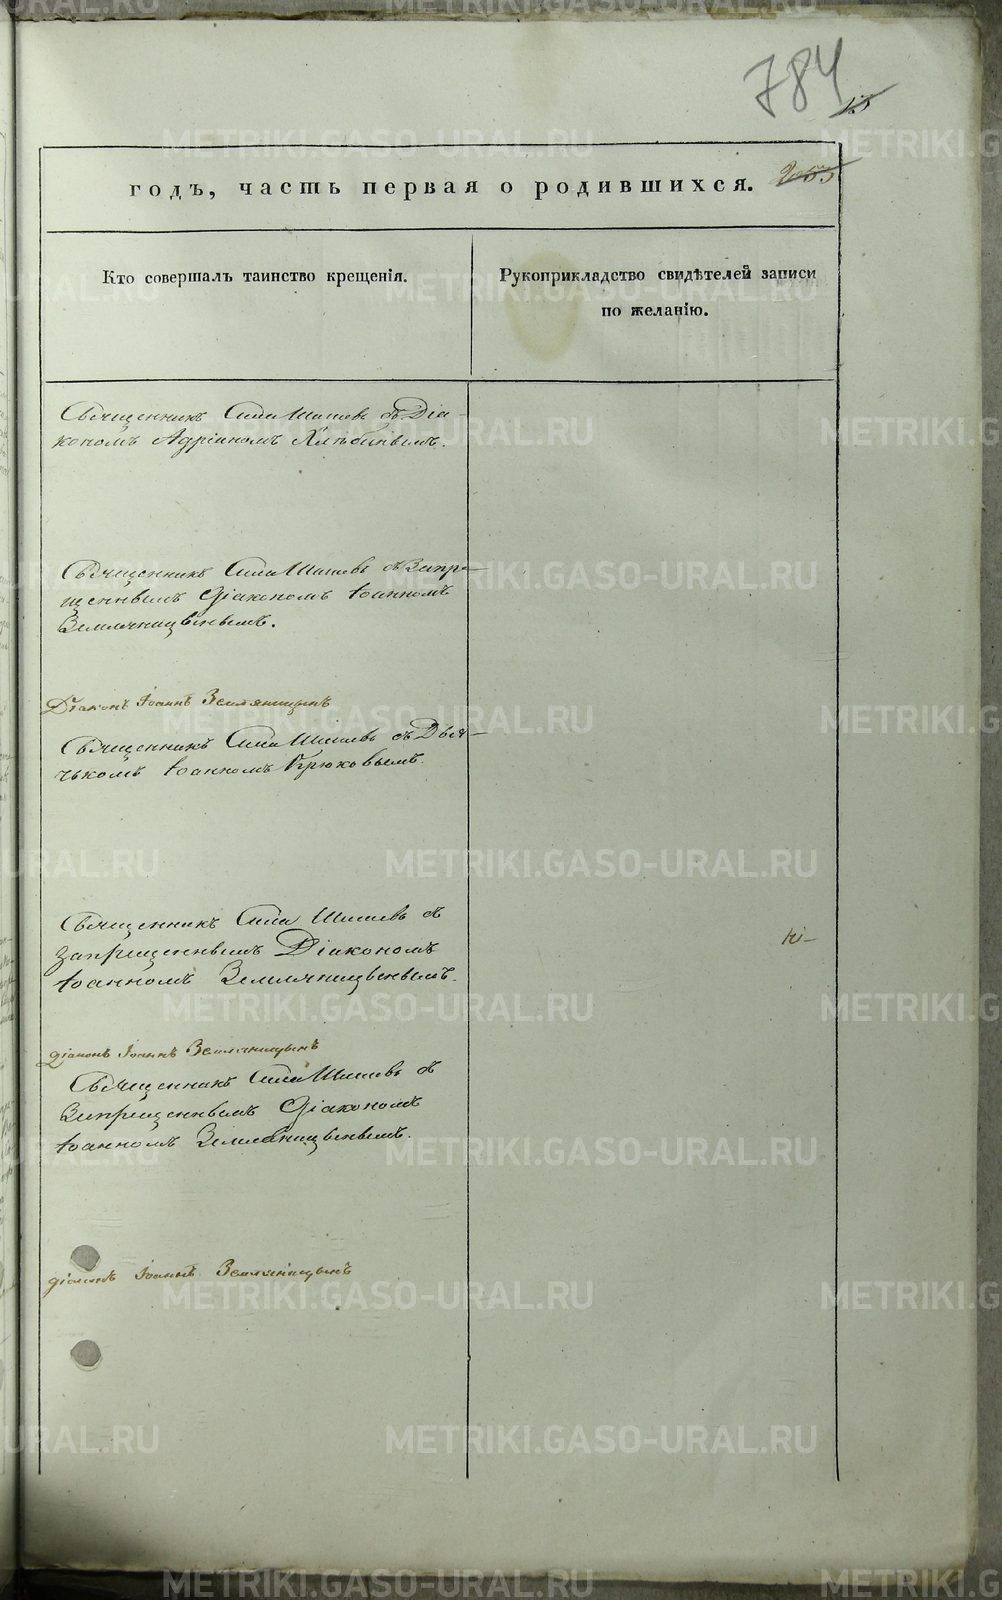 784
годъ, часть первая о родившихся.
Кто совершалъ таинство крещенія.
Рукоприкладство свидѣтелей записи
по желанію.
Священникъ Сила Шишевъ съ Діа-
кономъ Адріаномъ Хлѣбинымъ.
Священникъ Сила Шишевъ съ Запре-
щеннымъ Діакономъ Іоанномъ
Земляницынымъ.
Діаконъ Іоаннъ Земляницынъ
Священникъ Сила Шишевъ съ Дья-
чькомъ Іоанномъ Крюковымъ.
Священникъ Сила Шишевъ съ
Запрещеннымъ Діакономъ
Іоанномъ Земляницынымъ.
діаконъ Іоаннъ Земляницынъ
Священникъ Сила Шишевъ съ
Запрещеннымъ Діакономъ
Іоанномъ Земляницынымъ.
діаконъ Іоаннъ Земляницынъ
METRIKI.GASO-URAL.RU